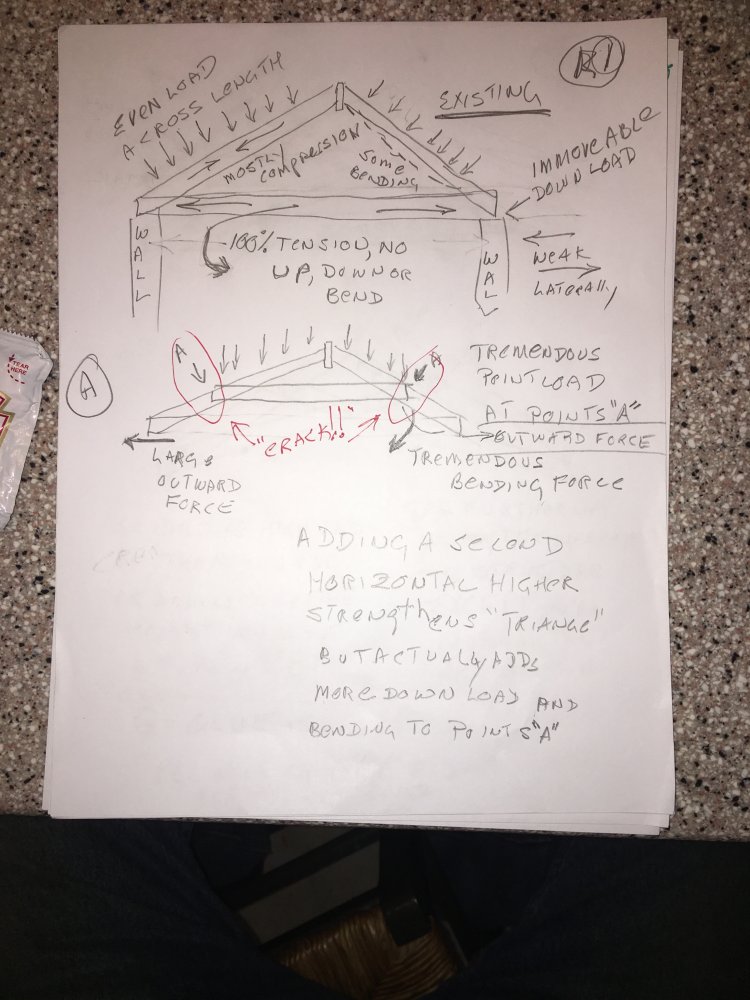 EVEN LOAD
ACROSS LENGTH
EXISTING
MOSTLY
COMPRESSION
SOME
BENDING
IMMOVEABLE
DOWN LOAD
WALL
100% TENSION, NO
UP, DOWN OR
BEND
WALL
WEAK
LATERALLY
TEAR
HERE
A
A
A
"CRACK!!"
TREMENDOUS
POINT LOAD
AT POINTS "A"
OUTWARD FORCE
LARGE
OUTWARD
FORCE
TREMENDOUS
BENDING FORCE
ADDING A SECOND
HORIZONTAL HIGHER
STRENGTHENS "TRIANGE"
BUT ACTUALLY ADDS
MORE DOWN LOAD AND
BENDING TO POINTS "A"